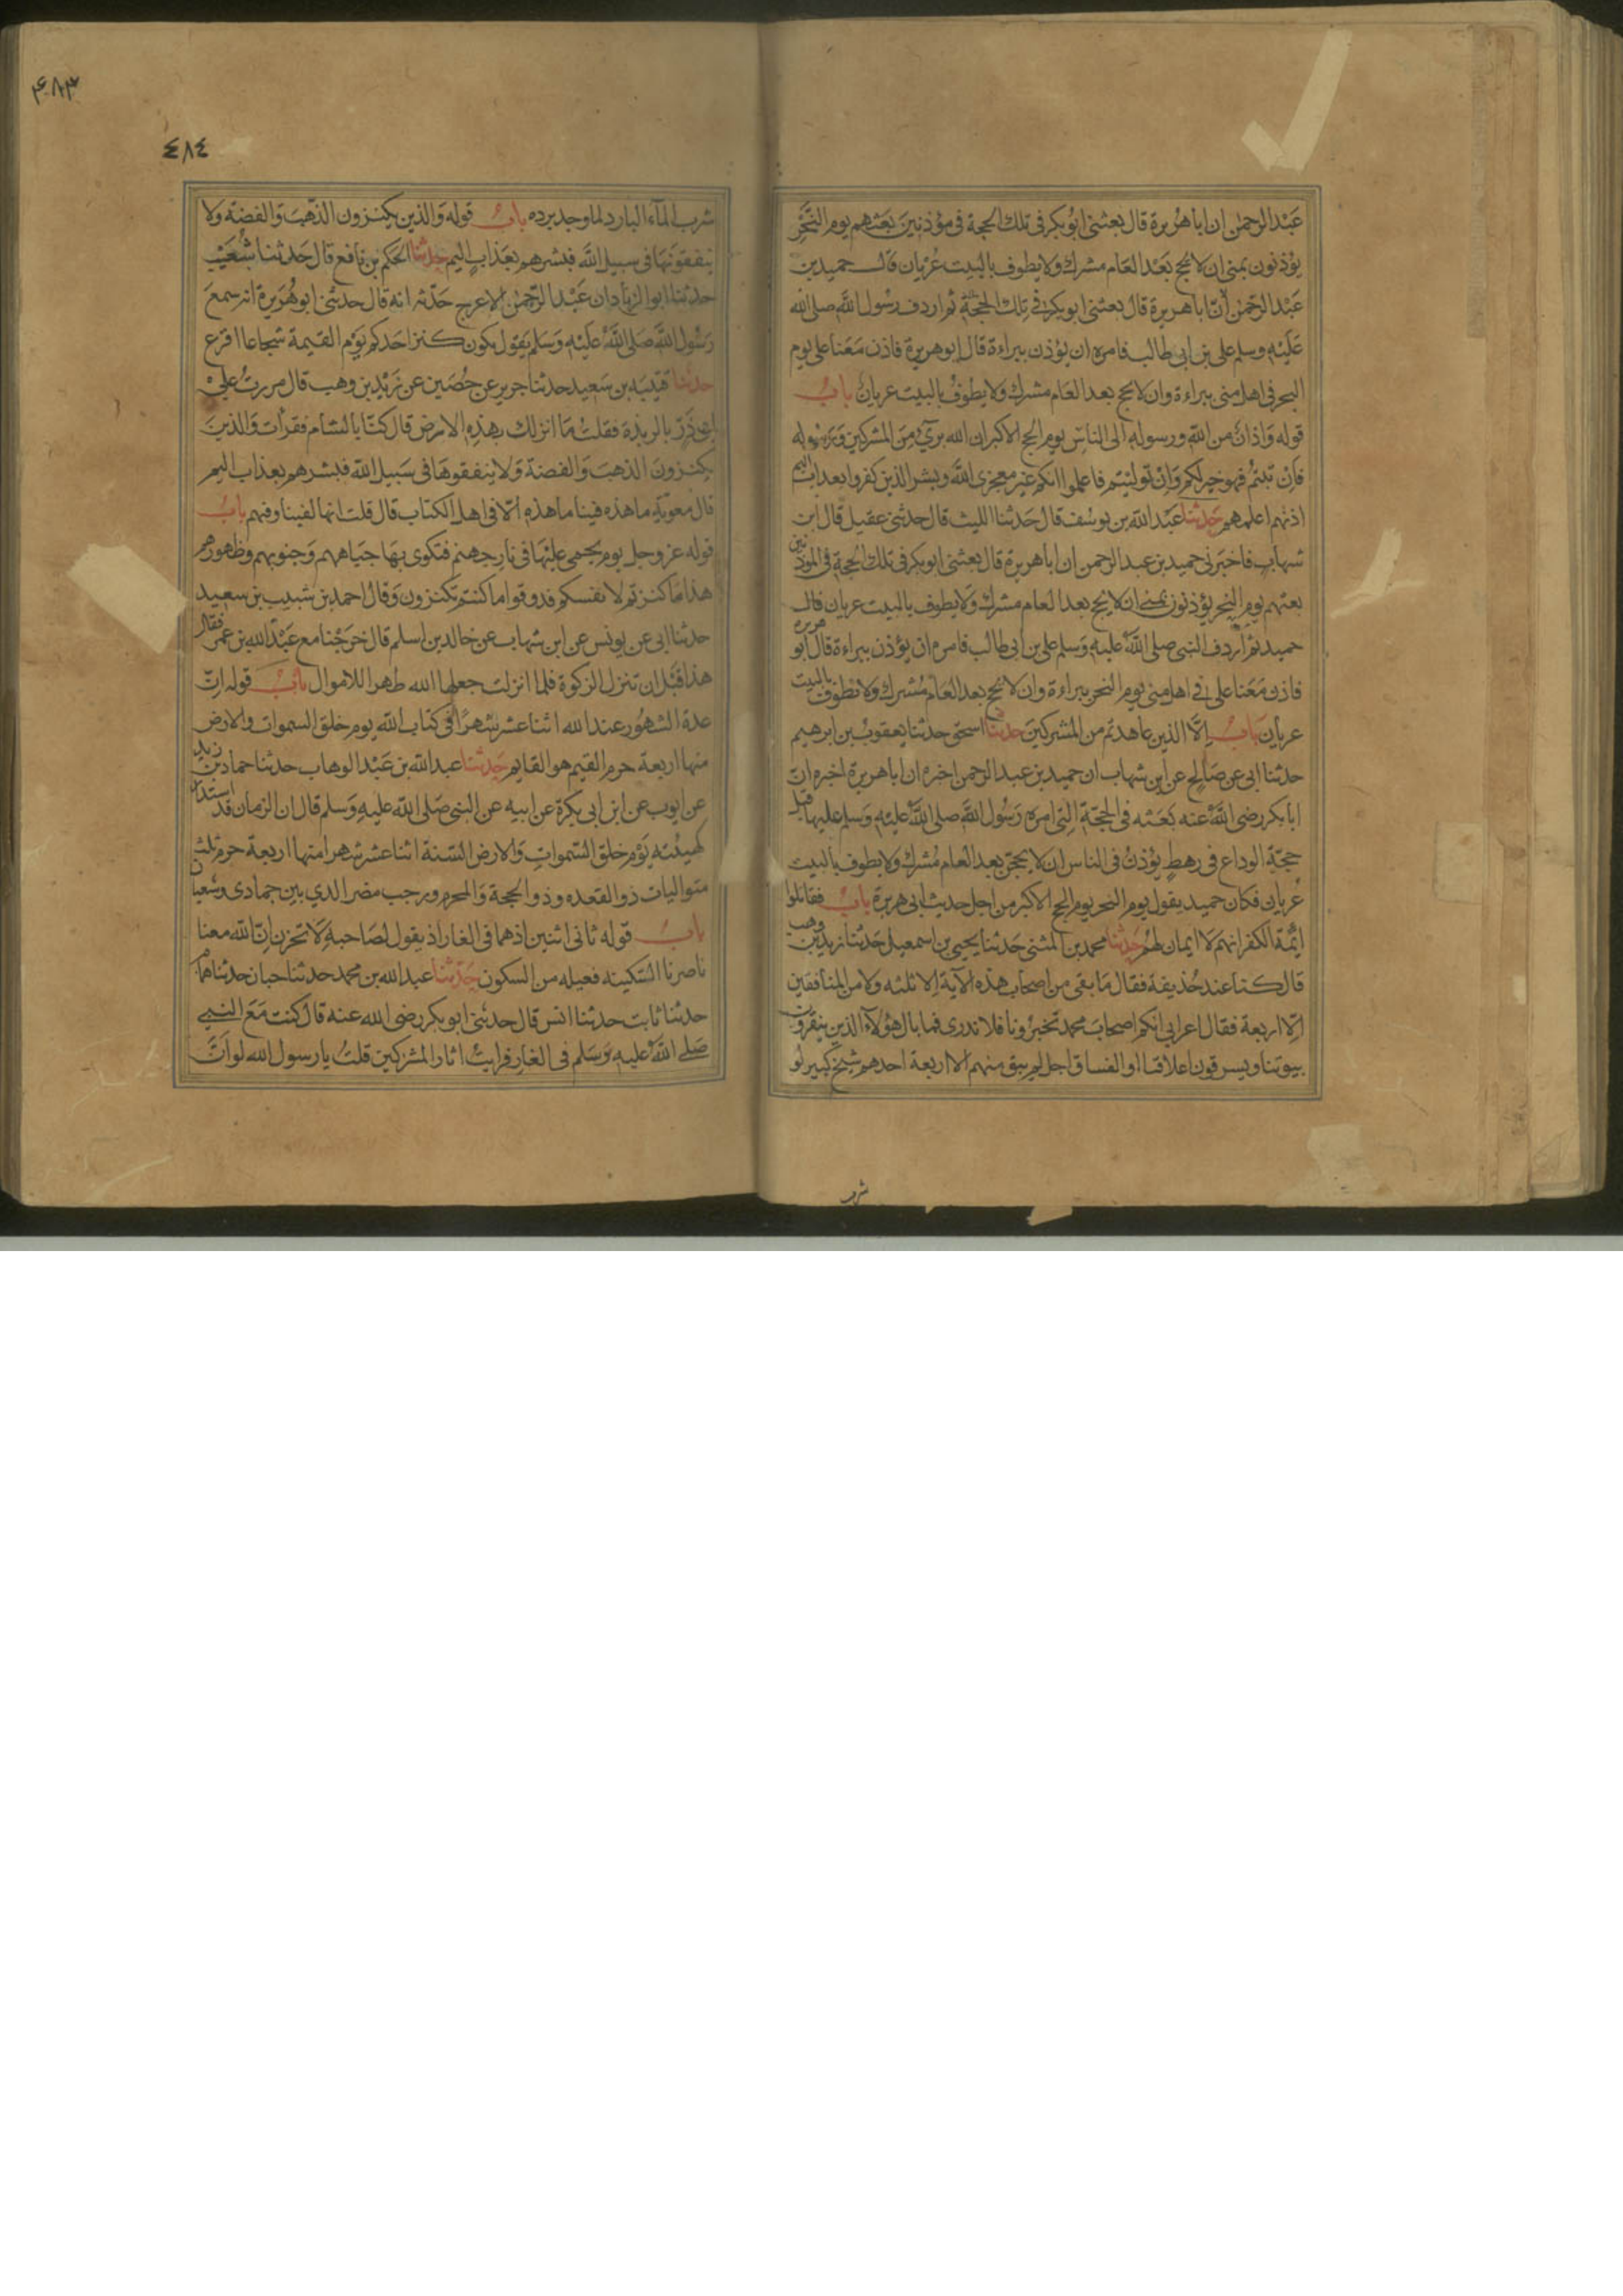 عَبْد الرحمٰن ان ابا هُريرة قال بَعثنى ابُو بكر فى تلك الحجة فى مؤذنينَ بَعَثهم يوم النَّحْرِ
يؤذنون بمنى ان لا يحج بَعْد العَام مشرك ولا يطوف بالبيت عُريان قال حميد بن
عَبْد الرحمٰن انّ ابا هريرة قال بعثنى ابو بكر فى تِلك الحجّة ثم اردف رسُول اللّٰه صلى الله
عَلَيْه وسلم على بن ابى طالب فامره ان يؤذن ببراءة قال ابو هريرة فاذن مَعَنا على يوم
النحر فى اهل منى ببراءة وان لا يحج بعد العَام مشرك ولا يطوفُ بالبيت عريان بابُ
قوله وَاذانٌ من اللّٰه ورسوله الى الناسِ يوم الحج الاكبر ان الله برئٌ مِنَ المشركين وَرَسُوله
فَاِنْ تبتمُ فهو خير لكم وَاِنْ توليتم فاعلموا انكم غير معجزى اللّٰه وبشر الذين كفروا بعداب اليم
اذنهم اعلمهم حَدثنا عَبْد اللّٰه بن يوسُف قال حَدثنا الليث قال حدثنى عقيل قال ابن
شهاب فاخبَرنى حميد بن عبد الرحمن ان ابا هريرة قال بعثنى ابو بكر فى تلك الحجة فى الموذنين
بعثهم يوم النحر يؤذنون بمنى ان لا يحج بعد العام مشرك ولا يطوف بالبيت عريان قال
حميد ثم اردف النبى صلى اللّٰه عليه وَسلم على بن ابى طالب فامره ان يؤذن ببراءة قال ابو هريرة
فاذن مَعَنا على فى اهل منى يوم النحر ببراءة وان لا يحج بعد العَام مُشرك ولا يطوف بالبيت
عريان بَابُ اِلَّا الذين عاهدتم من المشركينَ حدثنا اسحق حدثنا يعقوبُ بن ابرهيم
حدثنا ابى عن صَالح عن ابن شهاب ان حميد بن عبد الرحمن اخبره ان ابا هريرة اخبره انّ
ابا بكر رضى اللّٰه عنه بَعَثه فى الحجّة التى امره رَسُول اللّٰه صلى اللّٰه عليه وَسلم عليها قبل
حجّة الوداع فى رهطٍ يؤذنُ فى الناس ان لا يحجّ بعد العام مُشرك ولا يطوف بالبيت
عُريان فكان حميد يقول يوم النحر يوم الحج الاكبر من اجل حديث ابى هريرة بابُ فقاتلوا
ائمَّة الكفر انهم لا ايمان لهُم حَدثنا محمد بن المثنى حَدثنا يحيى بن اسمعيل حَدثنا زيد بن وهب
قال كنا عند حُذيفة فقال مَا بقى من اصحاب هذه الآية اِلا ثلثه ولا من المنافقين
اِلّا اربعة فقال اعرابى انكم اصحابَ محمد تخبرُونا فلا ندرى فما بال هؤلآء الذين يبقرون
بيوتنا ويسرقون اعلاقنا او الفساق اجل لم يبق منهم الا اربعة احدهم شيخ كبير لو
شرب
٤٨٣
٤٨٤
شرب المآء البارد لما وجد برده بابُ قوله وَالذين يكنزون الذّهبَ وَالفضّة وَلا
ينفقونَها فى سبيل اللّٰه فبشرهم بعَذابٍ اليم حدثنا الحكم بن نافع قال حَدثنا شُعَيْب
حدثنا ابو الزناد ان عَبْد الرّحمٰن الاعرج حَدّثه انه قال حدثنى ابو هُرَيرة انه سمعَ
رَسُول اللّٰه صَلى اللّٰه عَلَيْه وَسَلم يَقول يكون كنز احَدكم يَوْم القيمة شجاعا اقرع
حدثنا قتيبه بن سَعيد حدثنا جرير عن حُصَين عن زَيْد بن وهب قال مررتُ على
ابى ذَرّ بالربذة فقلتُ مَا انزلك بهذه الارض قال كنّا بالشام فقرأت وَالذينَ
يكنزونَ الذهبَ وَالفضة وَلا ينفقوهَا فى سَبيل اللّٰه فبشرهم بعذاب اليم
قال معوية ما هذه فينا ما هذه اِلّا فى اهل الكتاب قال قلت انها لفينا وفيهم بابُ
قوله عز وجل يوم يحمى عليْهَا فى نارِ جهنم فتكوى بهَا جبَاههم وَجنوبهم وظهورهم
هذا مَا كنزتم لانفسكم فدوقوا ما كنتم تكنزون وَقال احمد بن شبيب بن سعيد
حدثنا ابى عن يونس عن ابن شهاب عن خالد بن اسلم قال خرَجْنا مع عَبْد اللّٰه بن عمر فقال
هذا قَبْل ان تنزل الزكوة فلما انزلت جعلها الله طُهرا للاموال بابُ قوله اِنّ
عدة الشهُور عند الله اثنا عشر شهرًا فى كتاب اللّٰه يوم خلق السموات والارض
منها اربعة حرم القيم هو القايم حَدثنا عبد اللّٰه بن عَبْد الوهاب حدثنا حماد بن زيد
عن ايوب عن ابن ابى بكرة عن ابيه عن النبى صَلى اللّٰه عليه وَسلم قال ان الزمان قد استدار
كهيئته يَوْم خلق السّموات وَالارض السّنة اثنا عشر شهرا منها اربعة حرم ثلث
متواليات ذو القعده وذو الحجة وَالمحرم ورجب مضر الذي بين جمادى وشعبان
بابُ قوله ثانى اثنين اذ هما فى الغار اذ يقول لصَاحبه لا تحزن اِنّ اللّٰه معنا
ناصرنا السّكينه فعيله من السكون حَدّثنا عبد اللّٰه بن محمد حدثنا حبان حدثنا همام
حدثنا ثابت حدثنا انس قال حدثنى ابو بكر رضى الله عنه قال كنت مَعَ النبي
صَلى اللّٰه عليه وَسَلم فى الغار فرايتُ اثار المشركين قلتُ يا رسول الله لو انَّ